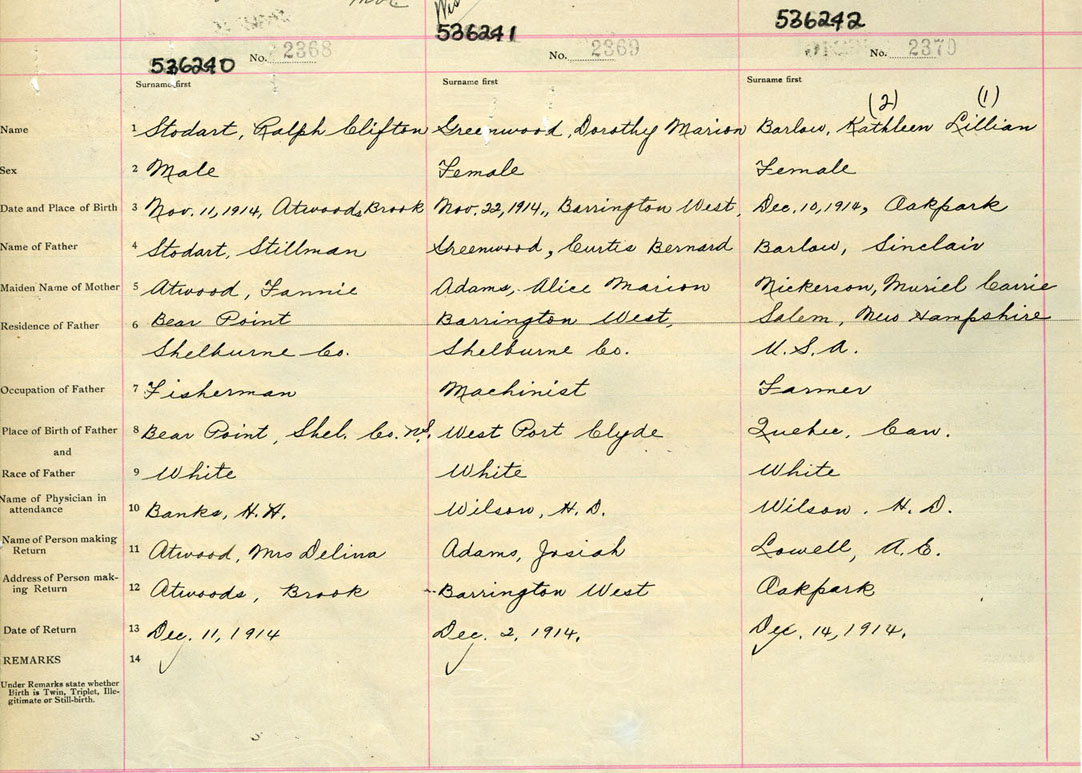 536240 536241 536242
No. 2368 No. 2369 No. 2370
Surname first Surname first Surname first
(2) (1)
Name 1 Stodart, Ralph Clifton Greenwood, Dorothy Marion Barlow, Kathleen Lillian
Sex 2 Male Female Female
Date and Place of Birth 3 Nov. 11, 1914, Atwoods Brook Nov. 22, 1914., Barrington West, Dec. 10, 1914, Oakpark
Name of Father 4 Stodart, Stillman Greenwood, Curtis Bernard Barlow, Sinclair
Maiden Name of Mother 5 Atwood, Fannie Adams, Alice Marion Nickerson, Muriel Carrie
Residence of Father 6 Bear Point Barrington West, Salem, New Hampshire
Shelburne Co. Shelburne Co. U.S.A.
Occupation of Father 7 Fisherman Machinist Farmer
Place of Birth of Father 8 Bear Point, Shel. Co. N.S. West Port Clyde Quebec, Can.
and
Race of Father 9 White White White
Name of Physician in
attendance 10 Banks, H.H. Wilson, H.D. Wilson. H.D.
Name of Person making
Return 11 Atwood, Mrs Delina Adams, Josiah Lowell, A.E.
Address of Person mak-
ing Return 12 Atwoods, Brook Barrington West Oakpark
Date of Return 13 Dec. 11, 1914 Dec. 2, 1914. Dec. 14, 1914.
REMARKS 14
Under Remarks state whether
Birth is Twin, Triplet, Ille-
gitimate or Still-birth.